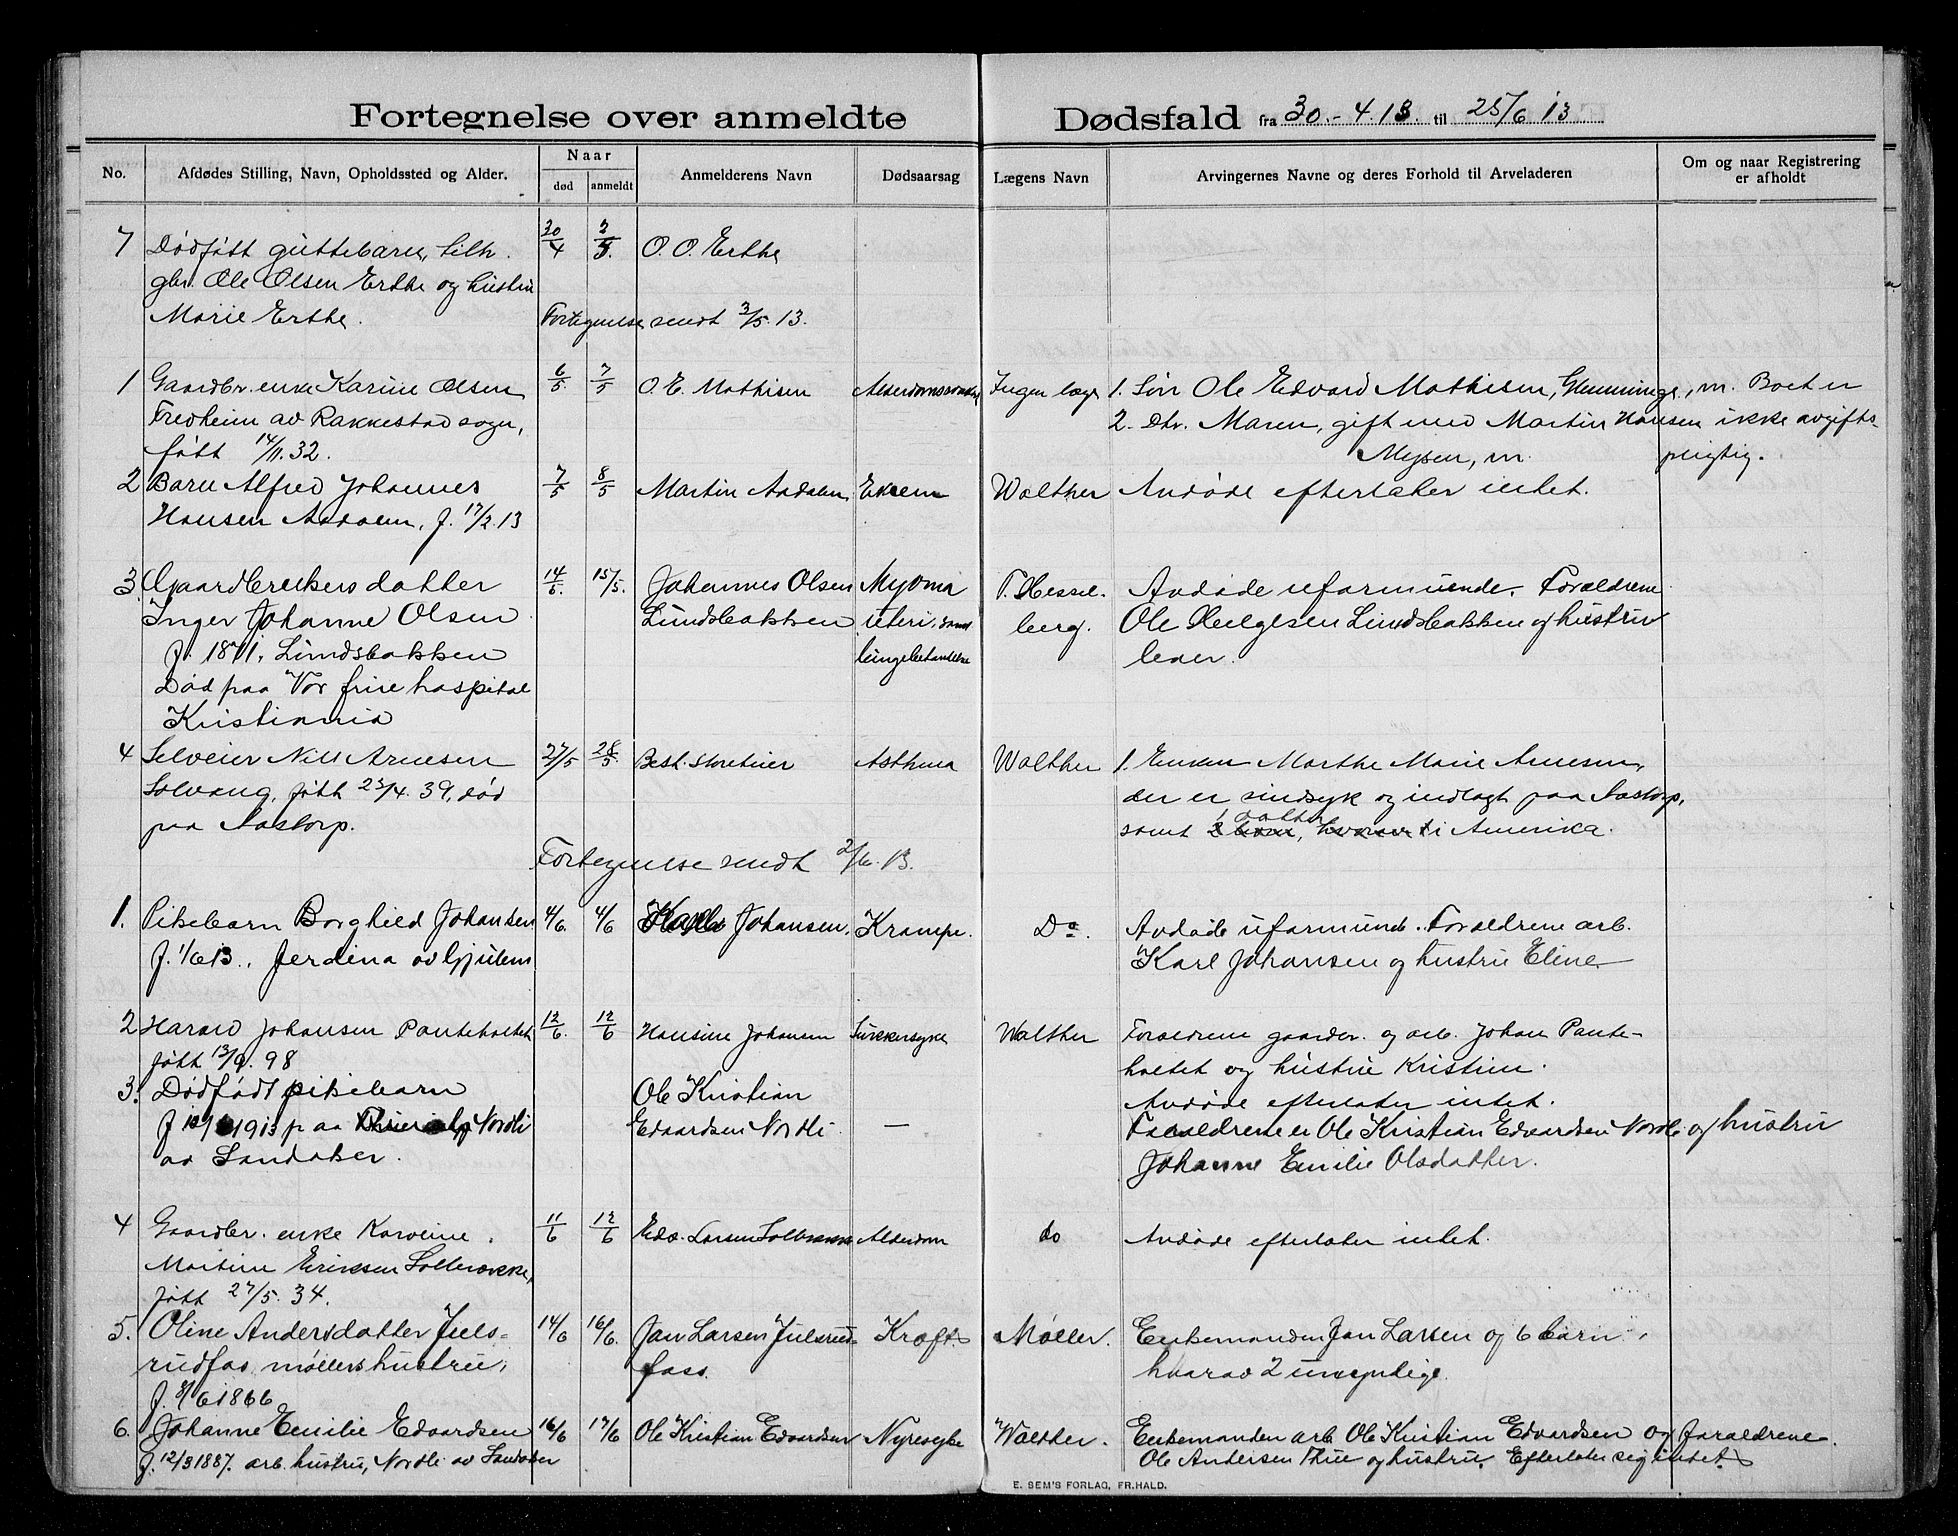 Fortegnelse over anmeldte Dødsfald fra 30.-4.13. til 25/6 13
No.
Afdødes Stilling, Navn, Opholdssted og Alder.
Naar
død
anmeldt
Anmelderens Navn
Dødsaarsag
Lægens Navn
Arvingernes Navne og deres Forhold til Arveladeren
Om og naar Registrering
er afholdt
7 Dødfött guttebarn, tilh. 30/4 2/5. O. O. Erthe
gbr. Ole Olsen Erthe og hustru
Marie Erthe. Fortegnelse sendt 3/5.13.
1 Gaardbr. enke Karine Olsen 6/5 7/5 O. E. Mathisen Ingen læge 1. Søn Ole Edvard Mathisen, Glemminge, m. Boet er
Fredheim av Rakkestad sogn, 2. Dtr. Maren, gift med Martin Hansen ikke avgifts-
født 14/11.32. Mysen, m. pligtig.
2 Barn Alfred Johannes 7/5 8/5 Martin Aadalen Eksem Walther Avdøde efterlater intet.
Hansen Aadalen, f. 17/2.13
3. Gaardbrukers datter 14/5. 15/5. Johannes Olsen Myoma F. Hessel- Avdøde uformuende. Foræeldrene
Inger Johanne Olsen Lundsbakken uteri, Ole Helgesen Lundsbakken og hustru
f. 1871. Lundsbakken berg. lever.
Død paa Vor frue hospital
Kristiania
4 Selveier Nils Arnesen 27/5 28/5. Best. Asthma Walther 1. Enken Marthe Marie Arnesen,
Solvang, født 23/4. 39, død der er sindsyk og indlagt paa Aastorp,
paa Aastorp. samt 1 datter i Amerika.
Fortegnelse sendt 2/6.13.
1. Pikebarn Borghild Johansen 4/6. 4/6 Karl Johansen. Krampe. Do. Avdøde uformuend. Forældrene arb.
f. 1/6 13., Jerdina av Gjulem Karl Johansen og hustru Eline
2 Harald Johansen Panteholtet 12/6. 12/6 Hansine Johansen Sukkersyke Walther Forældrene gaardbr. og arb. Johan Pante-
født 13/9. 98 holtet og hustru Kristine.
3. Dødfødt pikebarn Ole Kristian Avdøde efterlater intet.
1913 paa Nordli Edvardsen Nordli — Forældrene er Ole Kristian Edvardsen Nordli og hustru
av Sandaker. Johanne Emilie Olsdatter.
4 Gaardbr. enke Karoline 11/6 12/6 Edv. Larsen Alderdom do Avdøde efterlater intet.
Martine Eriksen
født 27/5. 34.
5. Oline Andersdatter Juls- 14/6 16/6. Jan Larsen Julsrud- Kræft Møller. Enkemanden Jan Larsen og 6 barn,
rudfos, møllers hustru, foss. hvorav 2 umyndige.
f. 8/6 1866
6. Johanne Emilie Edvardsen 16/6 17/6 Ole Kristian Edvardsen Nyresyke Walther. Enkemanden arb. Ole Kristian Edvardsen og forældrene
f. 12/3 1887. arb. hustru, Nordli av Sandaker Ole Andersen Thue og hustru. Efterlater sig intet.
E. SEM'S FORLAG, FR.HALD.